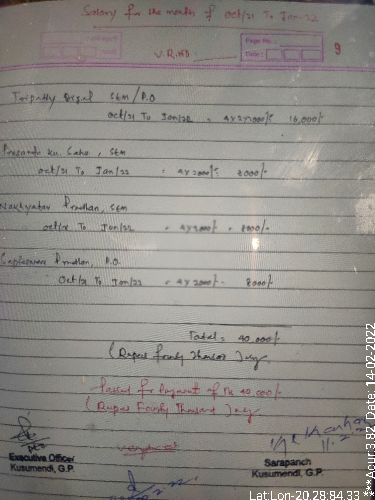 Salary for the month of Oct/21 To Jan-22
Page No.:
Date:
9
V.R.No
Tripathy SEM / P.O
Oct/21 To Jan/22 = 16,000/-
Ku. Sahu, SEM
Oct/21 To Jan/22 = 4x2000/- 8000/-
Pradhan, SEM
Oct/21 To Jan/22 = 4x2000/- = 8000/-
Pradhan, P.O.
Oct/21 To Jan/22 = 4x2000/- 8000/-
Total = 40,000/-
(Rupees Fourty Thousand) only
Passed for payment of Rs 40,000/-
(Rupees Fourty Thousand) only
PEO
Executive Officer
Kusumendi, G.P.
Sarapanch
Kusumendi, G.P.
Lat,Lon-20.28,84.33 ***Acur:3.82, Date: 14-02-2022